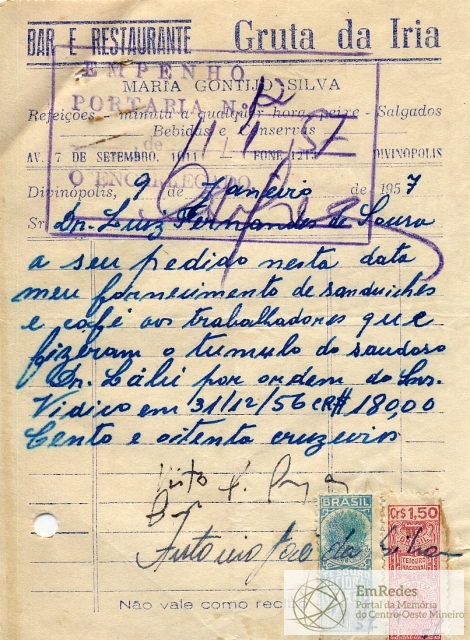 BAR E RESTAURANTE Gruta da Iria
EMPENHO
MARIA GONTIJO SILVA
PORTARIA N.
Refeições - minuta a qualquer hora - Salgados
Bebidas e Conservas
AV. 7 DE SETEMBRO, 1011 FONE, 1215 DIVINÓPOLIS
O ENCARREGADO
Divinópolis, 9 de Janeiro de 1957
Sr. Dr. Luiz Fernandes de Sousa
a seu pedido nesta data
meu fornecimento de sanduiches
e café aos trabalhadores que
fizeram o tumulo do saudoso
Dr. Lálú por ordem do Snr.
Vidico em 31/12/56 CR$ 180,00
Cento e oitenta cruzeiros
Visto
Antonio da Silva
BRASIL
Cr$ 1,50
TESOURO
NACIONAL
Não vale como recibo
EmRedes
Portal da Memória
do Centro-Oeste Mineiro